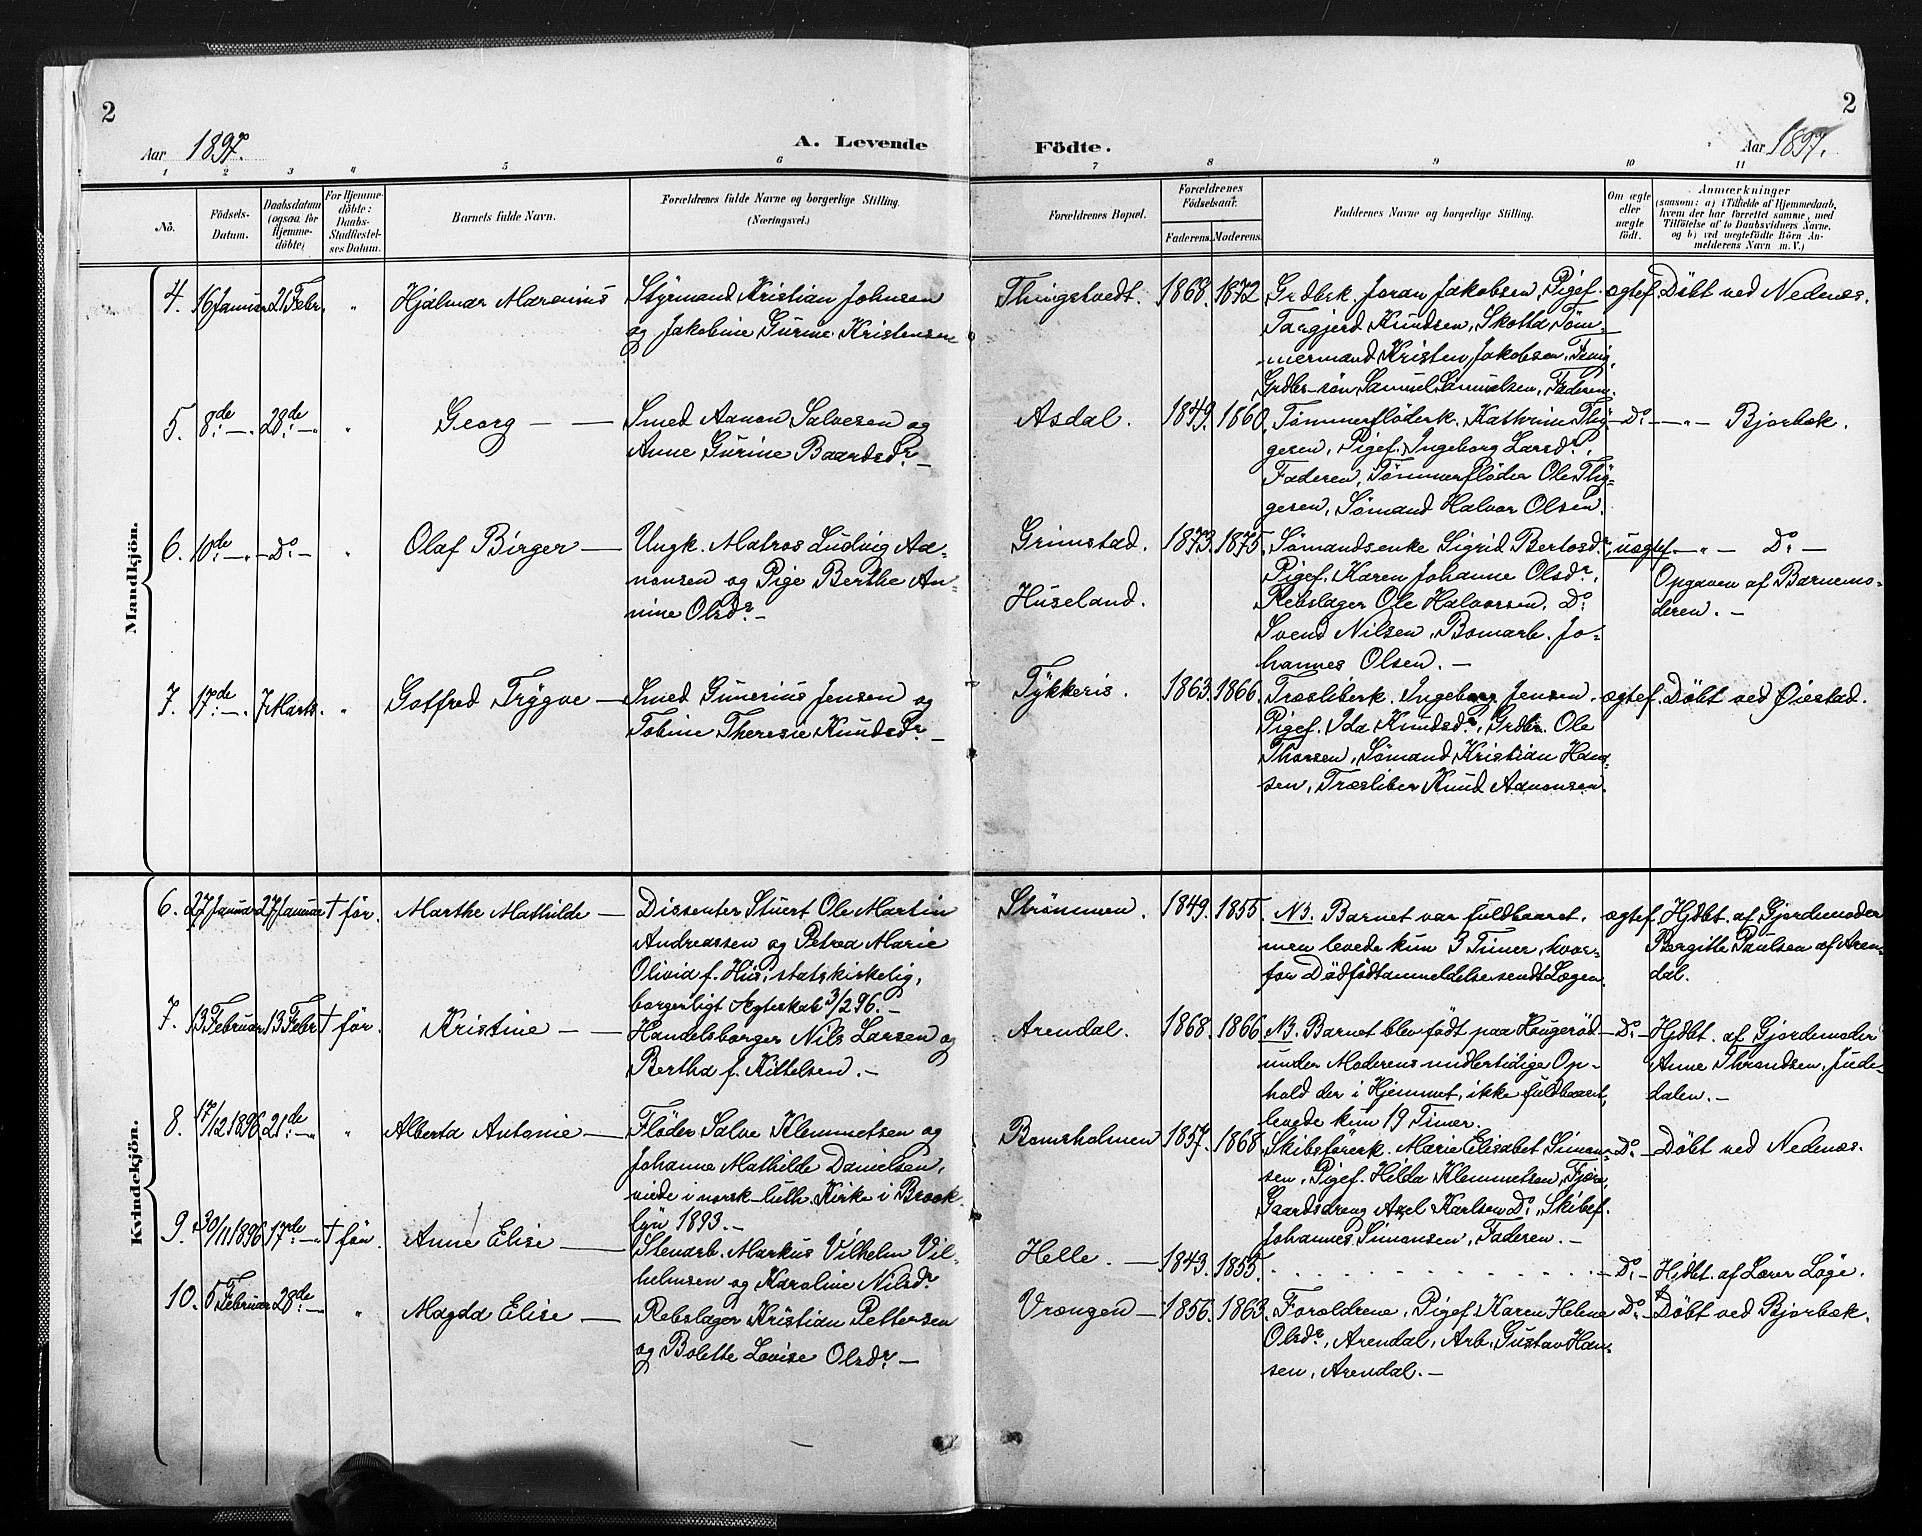 2
Aar 1897.
A. Levende
Födte.
Aar 1897.
2
1 2 3 4 5 6 7 8 9 10 11
No.
Födsels-
Datum.
Daabsdatum
(ogsaa for
Hjemme-
döbte)
For Hjemme-
döbte:
Daabs-
Stadfæstel-
ses Datum.
Barnets fulde Navn.
Forældrenes fulde Navne og borgerlige Stilling.
(Næringsvei.)
Forældrenes Bopæl.
Forældrenes
Födselsaar.
Faderens. Moderens.
Faddernes Navne og borgerlige Stilling.
Om ægte
eller
uægte
födt.
Anmærkninger
(saasom: a) i Tilfælde af Hjemmedaab,
hvem der har forrettet samme, med
Tilföielse af to Daabsvidners Navne.
og b) ved uægtefödte Börn An-
melderens Navn m. V.)
Mandkjön.
4. 16 Januar 21 Febr. " Hjalmar Marenius
Styrmand Kristian Johnsen
og Jakobine Gurine Kristensen
Thingstvedt. 1868. 1872
Grdbrk. Joran Jakobsen, Pigef.
Targjerd Knudsen, Skotta, Töm-
mermand Kristen Jakobsen, Teinig,
Grdbr-sön Samuel Samuelsen, Faderen.
ægtef. Döbt ved Nedenæs.
5. 8de - " 28de - " " Georg - -
Smed Aanon Salvesen og
Anne Gurine Baardsdr. -
Asdal. 1849. 1860.
Tömmerflöderk. Kathrine Thy-
gesen, Pigef. Ingeborg Larsdr.,
Faderen, Tömmerflöder Ole Thy-
gesen, Sömand Halvor Olsen.
- Do - " - Bjorbæk.
6. 10de - " - Do - " Olaf Birger -
Ungk. Matros Ludvig Aa-
nonsen og Pige Berthe An-
nine Olsdr. -
Grimstad.
Huseland.
1873. 1875.
Sömandsenke Sigrid Bertosdr.,
Pigef. Karen Johanne Olsdr.,
Rebslager Ole Halvorsen, Do
Svend Nilsen, Bomarb. Jo-
hannes Olsen. -
uægtef - " - Do -
Opgaven af Barnemo-
deren. -
7. 17de - " 7 Marts. " Gotfred Trygve -
Smed Gunerius Jensen og
Tobine Theresie Knudsdr. -
Tykkeris. 1863. 1866.
Træsliberk. Ingeborg Jensen.
Pigef. Ida Knudsdr., Grdbr. Ole
Thorsen, Sömand Kristian Han-
sen, Træsliber Knud Aanonsen.
ægtef. Döbt ved Öiestad.
Kvindekjön.
6. 27 Januar 27 Januar † för. Marthe Mathilde -
Dissenter Stuert Ole Martin
Andreassen og Petrea Marie
Olivia f. Hus, statskirkelig,
borgerligt Ægteskab 3/2 96. -
Strömmen. 1849. 1855.
NB. Barnet var fuldbaaret,
men levede kun 3 Timer, hvor-
for Dödfödtanmeldelse sendt Lægen.
ægtef. Hjdbt. af Gjordemoder
Bergitte Paulsen af Aren-
dal.
7. 13 Februar 13 Febr † för. Kristine - -
Handelsborger Nils Larsen og
Bertha f. Kittelsen. -
Arendal. 1868. 1866.
NB. Barnet blev födt paa Haugeröd
under Moderens midlertidige Op-
hold der i Hjemmet, ikke fuldbaaret,
levede kun 19 Timer.
- Do - Hjdbt. af Gjordemoder
Anne Throndsen, Jude-
dalen. -
8. 17/12 1896 21de - " " Alberta Antonie -
Flöder Salve Klemmetsen og
Johanne Mathilde Danielsen,
viede i norsk-luth. Kirke i Brook-
lyn 1893. -
Bomsholmen 1857. 1868
Skibsförerk. Marie Elisabet Simon-
sen, Pigef. Hilda Klemmetsen, Fjære,
Gaardsdreng Axel Karlsen Do, Skibsf.
Johannes Simonsen, Faderen. -
Do - Döbt ved Nedenæs.
9. 30/11 1896 17de - " † för. Anne Elise -
Stenarb. Markus Vilhelm Vil-
helmsen og Karoline Nilsdr.
Helle. - 1843. 1855.
- Do - Hjdbt. af Lærer Löge.
10. 5 Februar 28de - " Magda Elise -
Rebslager Kristian Pettersen
og Bolette Lovise Olsdr. -
Vrængen - 1856. 1863.
Forældrene, Pigef. Karen Helene
Olsdr., Arendal, Arb. Gustav Han-
sen, Arendal. -
Do - Döbt ved Bjorbæk.